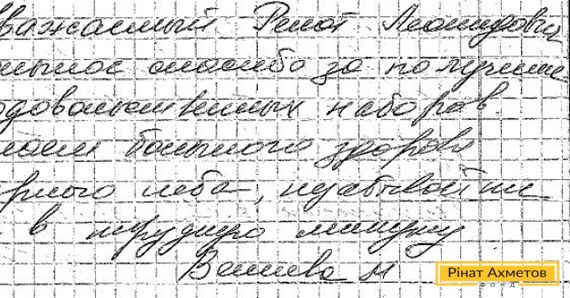 важаемый Ренат Леонидович
спасибо за получение
одовольственных наборов.
лаем большого здоровья
рного неба, незабывайте
в трудную минуту
М
Рінат Ахметов
ФОНД